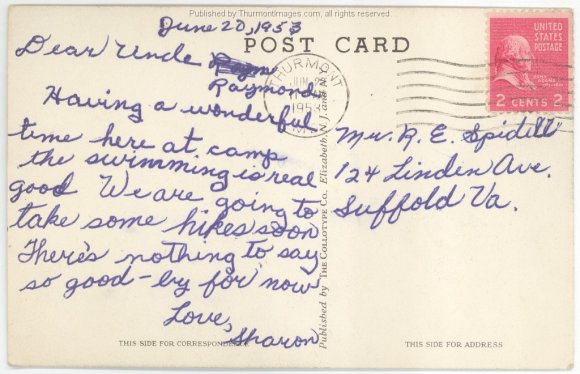 Published by ThurmontImages.com, all rights reserved.
June 20, 1953
POST CARD
Dear Uncle
Raymond
Having a wonderful
time here at camp
the swimming is real
good We are going to
take some hikes soon
There's nothing to say
so good-by for now
Love,
Sharon
THIS SIDE FOR CORRESPONDENCE
Published by THE COLLOTYPE Co., Elizabeth, N. J. and
THURMONT
JUN
1953
MD.
UNITED
STATES
POSTAGE
JOHN ADAMS
2 CENTS 2
Mr. R. E.
124 Linden Ave.
Suffold Va.
THIS SIDE FOR ADDRESS